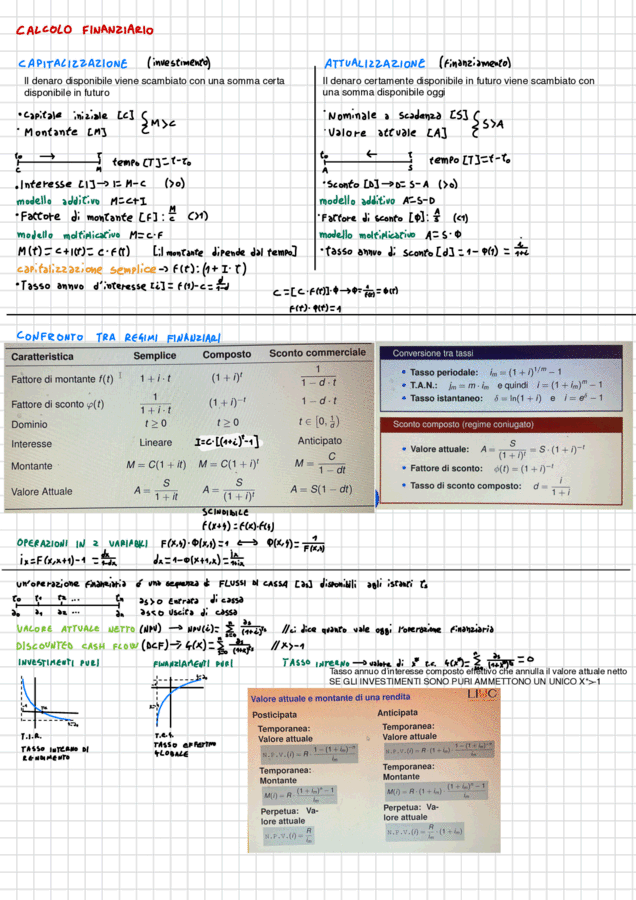 CALCOLO FINANZIARIO
CAPITALIZZAZIONE (investimento)
Il denaro disponibile viene scambiato con una somma certa
disponibile in futuro
• Capitale iniziale [C]
• Montante [M]
M>C
t₀ → t
C M
tempo [T]=t-t₀
• Interesse [I] → I=M-C (>0)
modello additivo M=C+I
• Fattore di montante [f]: M/C (>1)
modello moltiplicativo M=C·F
M(t)=C+I(t)=C·f(t) [il montante dipende dal tempo]
capitalizzazione semplice → f(t):(1+I·t)
• Tasso annuo d'interesse [i]=f(1)-C=d/1-d
ATTUALIZZAZIONE (finanziamento)
Il denaro certamente disponibile in futuro viene scambiato con
una somma disponibile oggi
• Nominale a scadenza [S]
• Valore attuale [A]
S>A
t₀ ← t
A S
tempo [T]=t-t₀
• Sconto [D] → D=S-A (>0)
modello additivo A=S-D
• Fattore di sconto [φ]: A/S (<1)
modello moltiplicativo A=S·φ
• Tasso annuo di sconto [d]=1-φ(1)=i/1+i
C=[C·f(t)]·φ→φ=1/f(t)=φ(t)
f(t)·φ(t)=1
CONFRONTO TRA REGIMI FINANZIARI
Caratteristica Semplice Composto Sconto commerciale
Fattore di montante f(t) 1+i·t (1+i)^t 1/(1-d·t)
Fattore di sconto φ(t) 1/(1+i·t) (1+i)^-t 1-d·t
Dominio t≥0 t≥0 t∈[0,1/d)
Interesse Lineare I=C·[(1+i)^t-1] Anticipato
Montante M=C(1+it) M=C(1+i)^t M=C/(1-dt)
Valore Attuale A=S/(1+it) A=S/(1+i)^t A=S(1-dt)
SCINDIBILE
f(x+y)=f(x)·f(y)
Conversione tra tassi
• Tasso periodale: i_m=(1+i)^1/m-1
• T.A.N.: j_m=m·i_m e quindi i=(1+i_m)^m-1
• Tasso istantaneo: δ=ln(1+i) e i=e^δ-1
Sconto composto (regime coniugato)
• Valore attuale: A=S/(1+i)^t=S·(1+i)^-t
• Fattore di sconto: φ(t)=(1+i)^-t
• Tasso di sconto composto: d=i/(1+i)
OPERAZIONI IN 2 VARIABILI F(x,y)·φ(x,y)=1 ⟷ φ(x,y)=1/F(x,y)
ix=F(x,x+1)-1=dx/1-dx dx=1-φ(x+1,x)=ix/1+ix
un'operazione finanziaria è una sequenza di FLUSSI DI CASSA [as] disponibili agli istanti ts
t₀ t₁ t₂ ... tn
a₀ a₁ a₂ ... an
as>0 entrata di cassa
as<0 uscita di cassa
VALORE ATTUALE NETTO (NPV) → NPV(i)=Σ as/(1+i)^ts // ci dice quanto vale oggi l'operazione finanziaria
DISCOUNTED CASH FLOW (DCF) → G(x)=Σ as/(1+x)^ts // x>-1
INVESTIMENTI PURI
FINANZIAMENTI PURI
TASSO INTERNO → valore di
Tasso annuo d'interesse composto effettivo che annulla il valore attuale netto
SE GLI INVESTIMENTI SONO PURI AMMETTONO UN UNICO X*>-1
T.I.R.
TASSO INTERNO DI
RENDIMENTO
T.E.G.
TASSO EFFETTIVO
GLOBALE
LIUC
Valore attuale e montante di una rendita
Posticipata
Temporanea:
Valore attuale
N.P.V.(i)=R·(1-(1+i_m)^-n)/i_m
Temporanea:
Montante
M(i)=R·((1+i_m)^n-1)/i_m
Perpetua: Va-
lore attuale
N.P.V.(i)=R/i_m
Anticipata
Temporanea:
Valore attuale
N.P.V.(i)=R·(1+i_m)·(1-(1+i_m)^-n)/i_m
Temporanea:
Montante
M(i)=R·(1+i_m)·((1+i_m)^n-1)/i_m
Perpetua: Va-
lore attuale
N.P.V.(i)=R/i_m·(1+i_m)